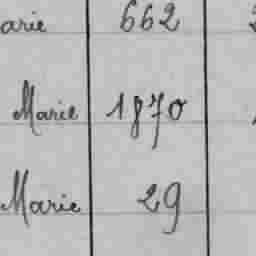 arie 662
Marie 1870
Marie 29